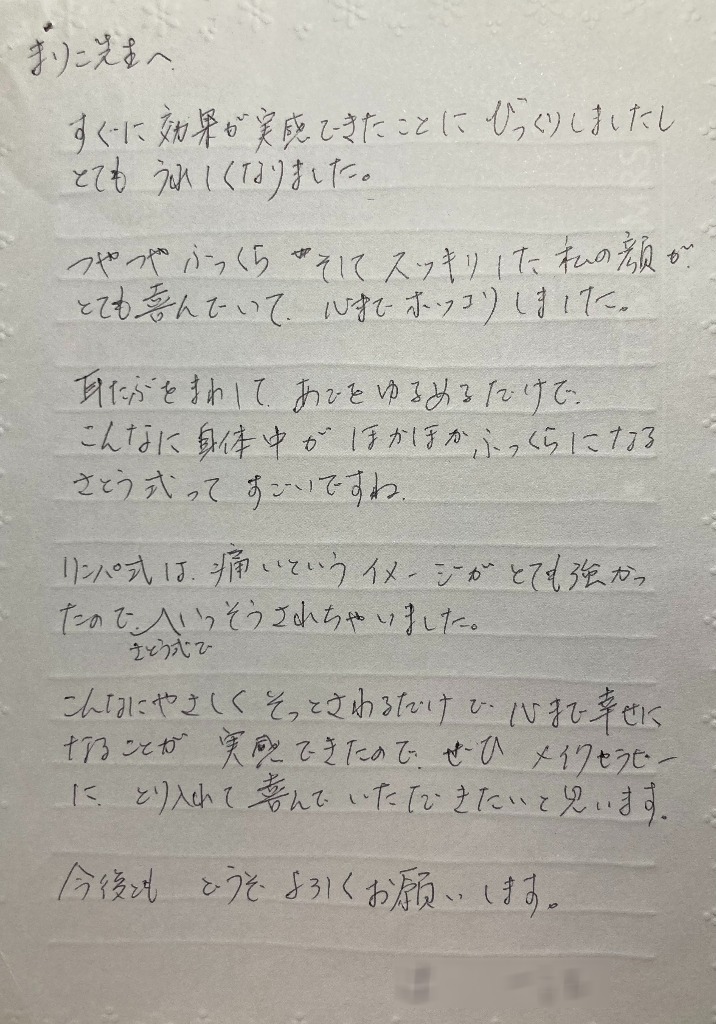 まりこ先生へ
すぐに効果が実感できたことに びっくりしましたし
とても うれしくなりました。
つやつや ふっくら そして スッキリした 私の顔が
とても喜んでいて、心まで ホッコリしました。
耳たぶをまわして、あごをゆるめるだけで、
こんなに身体中が ほかほか、ふっくらになる
さとう式って すごいですね。
リンパ式は、痛いという イメージが とても強かっ
たので、いっそうされちゃいました。
さとう式で
こんなにやさしく そっとさわるだけで 心まで幸せに
なることが 実感できたので、ぜひ メイクセラピー
に、とり入れて 喜んで いただきたいと思います。
今後とも どうぞ よろしくお願いします。